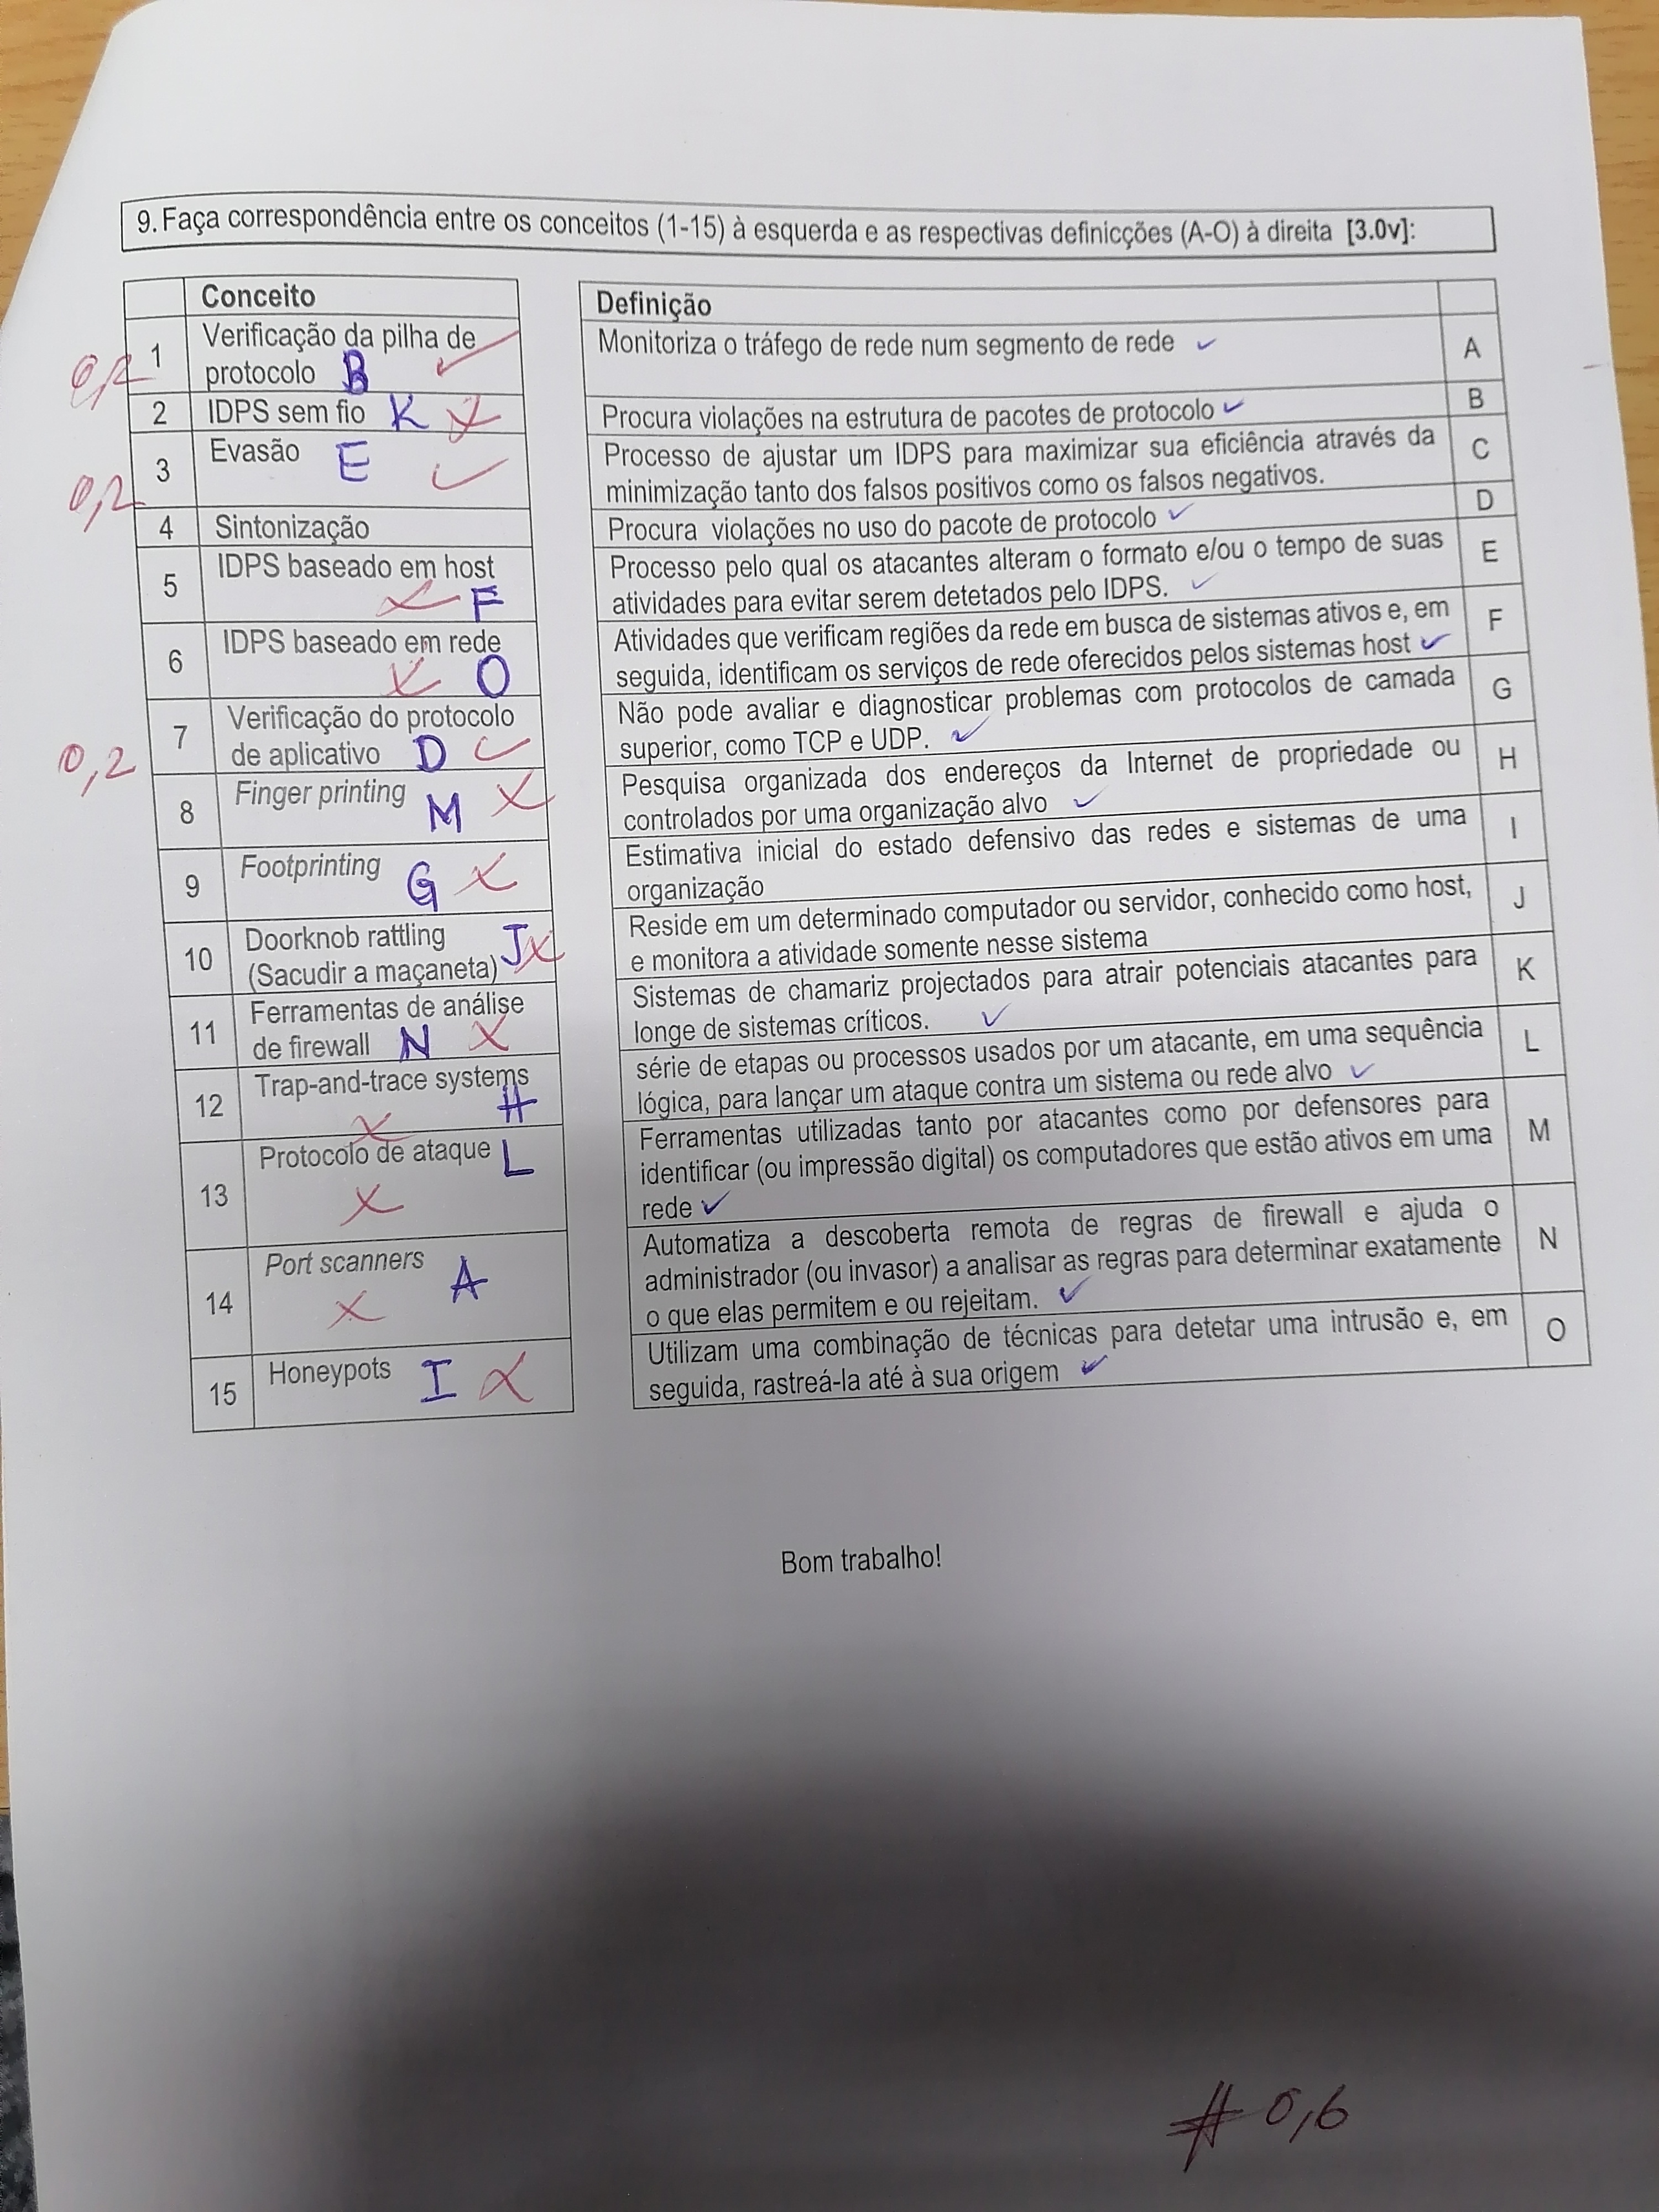 9. Faça correspondência entre os conceitos (1-15) à esquerda e as respectivas definicções (A-O) à direita [3.0v]:
Conceito
0,2
1
Verificação da pilha de
protocolo B
2
IDPS sem fio K
0,2
3
Evasão E
4
Sintonização
5
IDPS baseado em host
F
6
IDPS baseado em rede
O
0,2
7
Verificação do protocolo
de aplicativo D
8
Finger printing M
9
Footprinting G
10
Doorknob rattling J
(Sacudir a maçaneta)
11
Ferramentas de análise
de firewall N
12
Trap-and-trace systems
H
13
Protocolo de ataque L
14
Port scanners A
15
Honeypots I
Definição
Monitoriza o tráfego de rede num segmento de rede
A
Procura violações na estrutura de pacotes de protocolo
B
Processo de ajustar um IDPS para maximizar sua eficiência através da
minimização tanto dos falsos positivos como os falsos negativos.
C
Procura violações no uso do pacote de protocolo
D
Processo pelo qual os atacantes alteram o formato e/ou o tempo de suas
atividades para evitar serem detetados pelo IDPS.
E
Atividades que verificam regiões da rede em busca de sistemas ativos e, em
seguida, identificam os serviços de rede oferecidos pelos sistemas host
F
Não pode avaliar e diagnosticar problemas com protocolos de camada
superior, como TCP e UDP.
G
Pesquisa organizada dos endereços da Internet de propriedade ou
controlados por uma organização alvo
H
Estimativa inicial do estado defensivo das redes e sistemas de uma
organização
I
Reside em um determinado computador ou servidor, conhecido como host,
e monitora a atividade somente nesse sistema
J
Sistemas de chamariz projectados para atrair potenciais atacantes para
longe de sistemas críticos.
K
série de etapas ou processos usados por um atacante, em uma sequência
lógica, para lançar um ataque contra um sistema ou rede alvo
L
Ferramentas utilizadas tanto por atacantes como por defensores para
identificar (ou impressão digital) os computadores que estão ativos em uma
rede
M
Automatiza a descoberta remota de regras de firewall e ajuda o
administrador (ou invasor) a analisar as regras para determinar exatamente
o que elas permitem e ou rejeitam.
N
Utilizam uma combinação de técnicas para detetar uma intrusão e, em
seguida, rastreá-la até à sua origem
O
Bom trabalho!
# 0,6